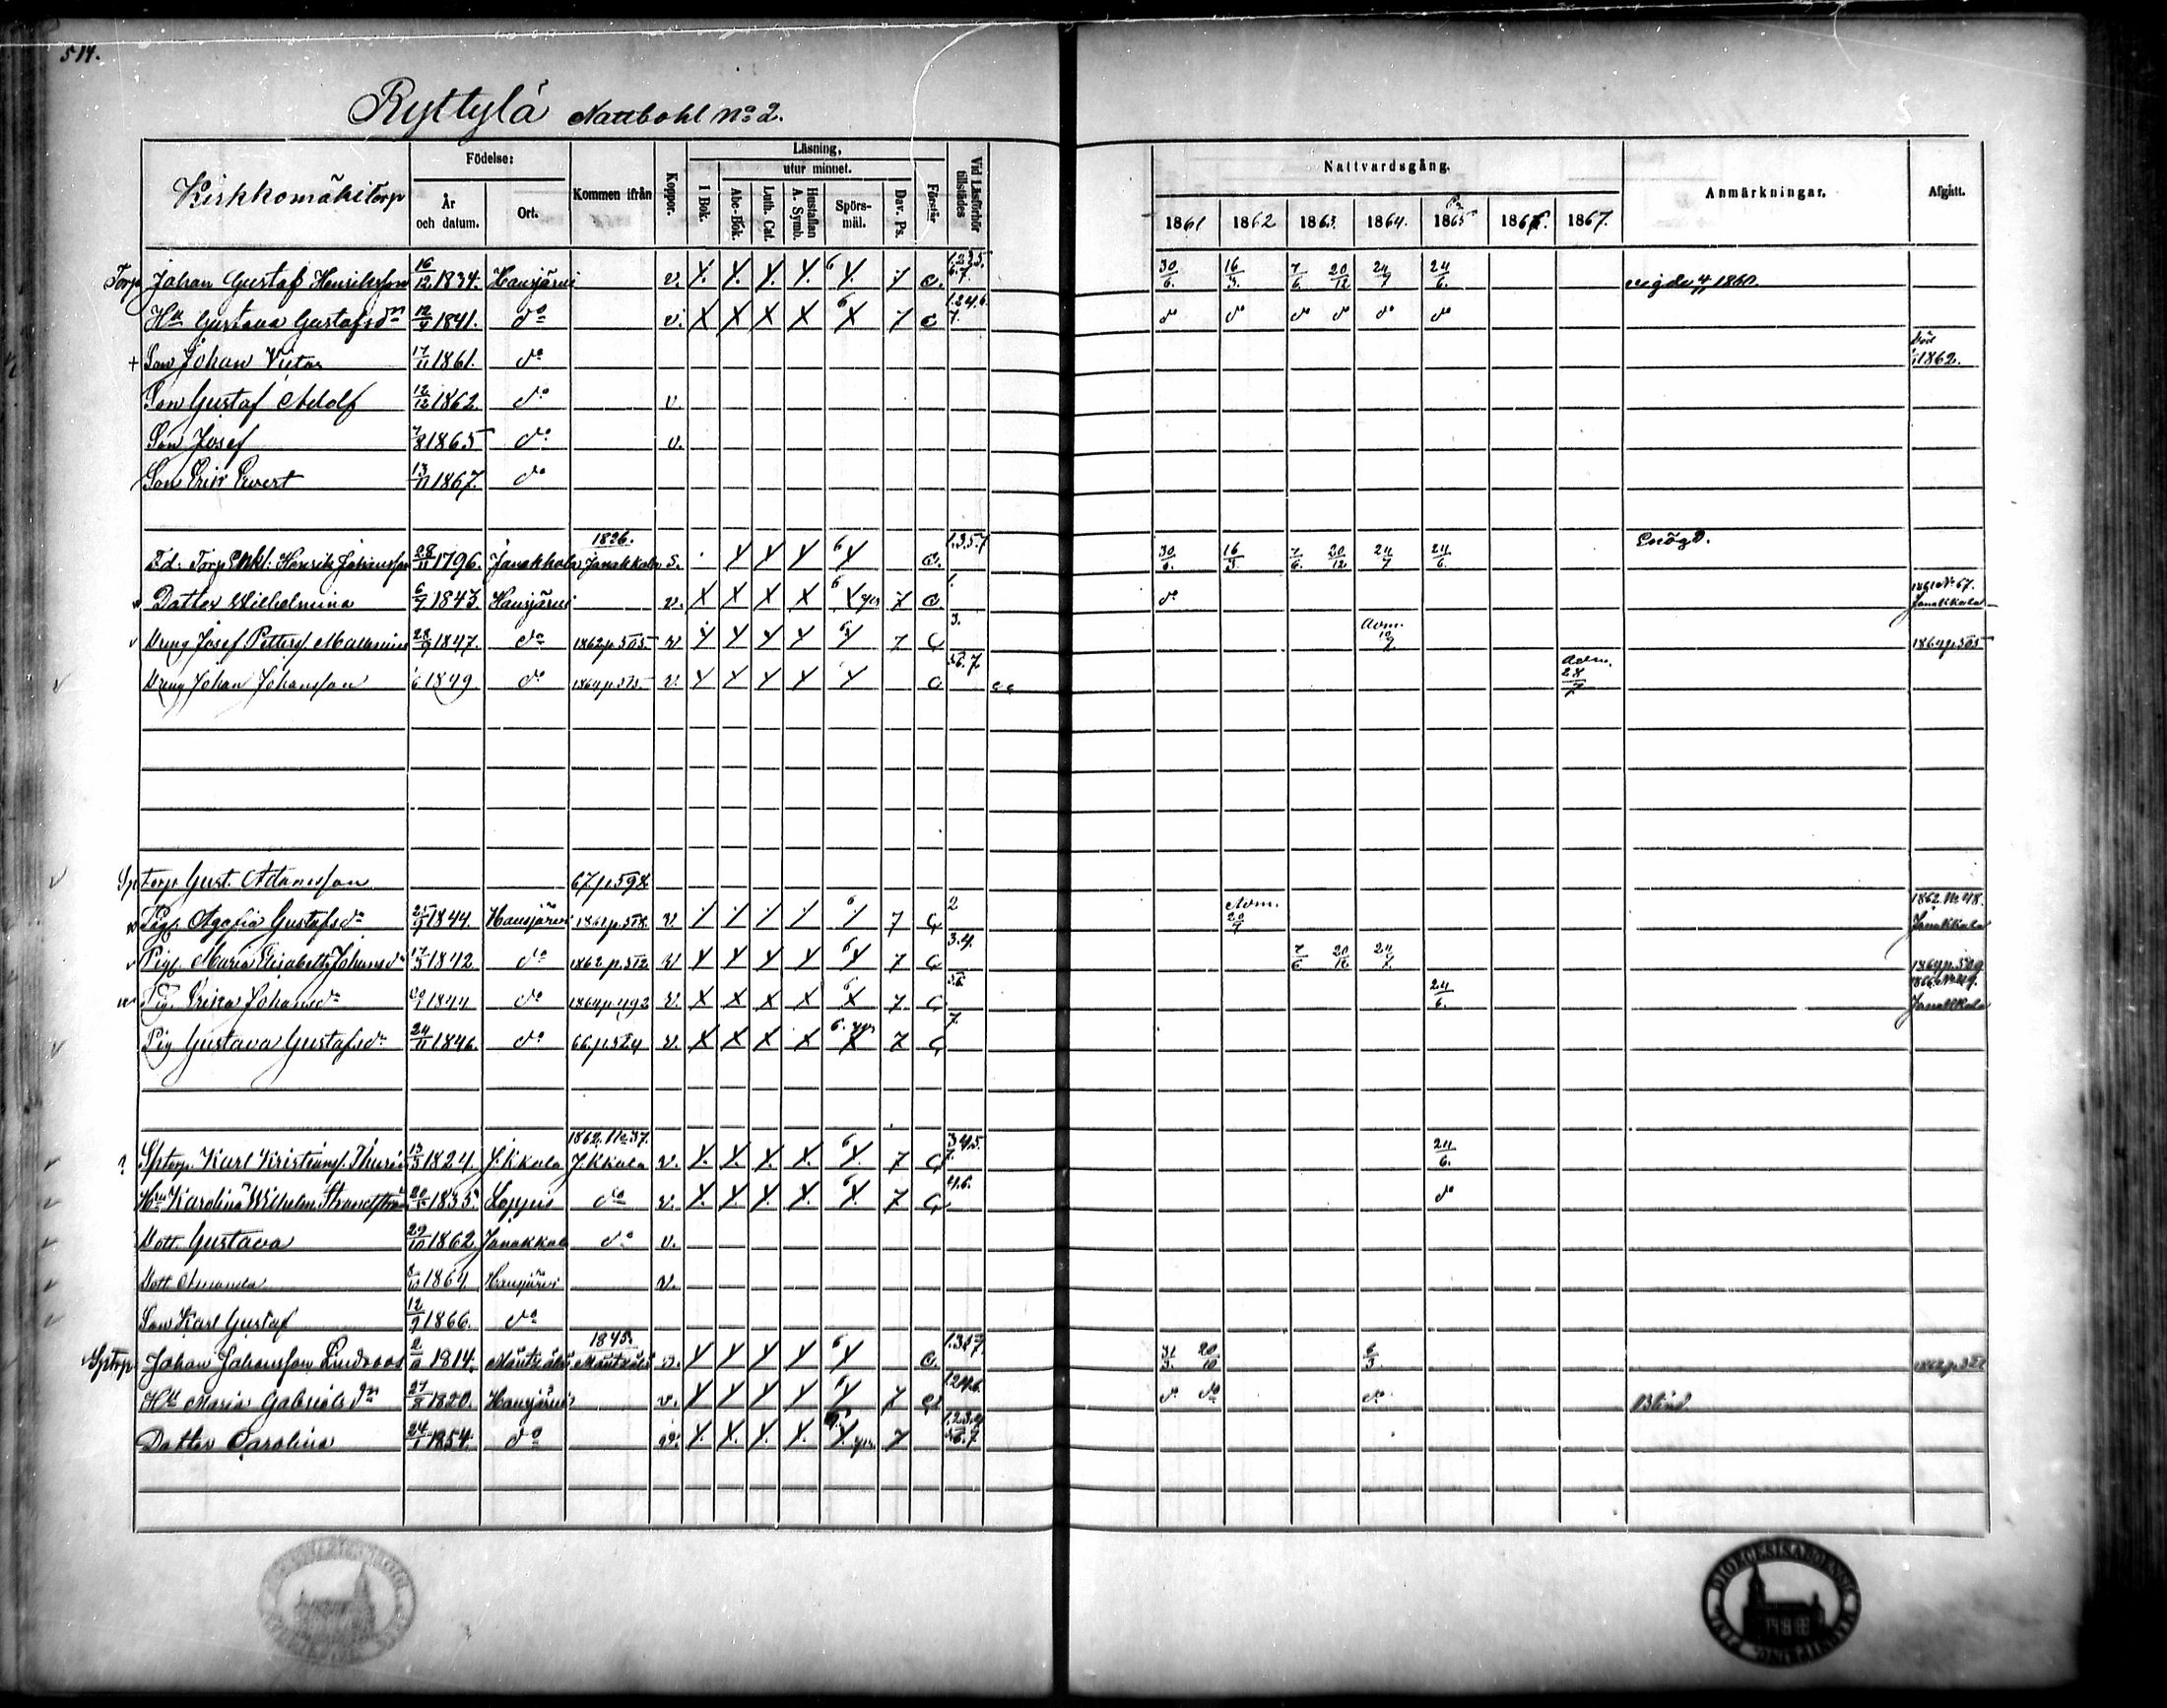 514.
Ryttylä Nattbohl No 2.
Kirkkomäki torp
Födelse:
År och datum.
Ort.
Kommen ifrån
Koppor.
Läsning,
utur minnet.
I Bok.
Abc-Bok.
Luth. Cat.
Hustaflan A. Symb.
Spörsmål.
Dav. Ps.
Förstår
Vid Läsförhör tillstädes
Nattvardsgång.
1861 1862 1863. 1864. 1865 1866. 1867.
Anmärkningar.
Afgått.
Torp. Johan Gustaf Henriksson 16/12 1834. Hausjärvi v. 7 c. 1.2.3.5. 6.7. 30/6. 16/3. 7/6. 20/12 24/7 24/6. vigda 4/11 1860.
Hu Gustava Gustafsdr 12/4 1841. do v. 6 7 c 1.2.4.6. 7. do do do do do do
+ Son Johan Victor 17/11 1861. do Död 1862.
Son Gustaf Adolf 12/12 1862. do v.
Son Josef 7/8 1865 do v.
Son Erik Evert 13/11 1867. do
Fd. Torp Enkl. Henrik Johansson 28/11 1796. Janakkala 1826. Janakkala s. 6 c. 1.3.5.7 30/6. 16/3 7/6. 20/12 24/7 24/6. Enögd.
Dotter Wilhelmina 6/7 1843. Hausjärvi v. 6 7 c. 1. do 1861 No 67. Janakkala
v Dreng Josef Petterss. 28/9 1847. do 1862 p. 505 v 7 c 3. Adm. 10/7 1864 p. 505
Dreng Johan Johansson 1849. do 1864 p. 515 v. c 5.6.7. Adm. 28/7
Sp torp. Gust. Adamsson 67 p. 598
Pig. Agafia Gustafsdr 25/9 1844. Hausjärvi 1861 p. 518. v. 6 7 c 2 Adm. 20/7 1862 No 48. Janakkala
v Pig. Maria Elisabeth Johansdr 17/5 1842 do 1862 p. 512 v 6 7 c 3.4. 7/6 20/12 24/7. 1864 p. 509
Pig. Erika Johansdr 1844 do 1864 p. 492 v. 6 7. c 5.6. 24/6. Janakkala
Pig Gustava Gustafsdr 24/11 1846. do 66. p. 524 v. 6. 7 c 7.
? Sptorp. Karl Kristianss. 13/5 1824. J.kkala 1862. No 37. J.kkala v. 6 7 c 3.4.5. 7. 24/6.
Hu Karolina Wilhelm. 1835. Loppis do v. 6 7 c 4.6. do
Dott. Gustava 29/10 1862. Janakkala do v.
Dott. Amanda 1864. Hausjärvi v.
Son Karl Gustaf 12/9 1866. do
Sptorp Johan Johansson Lindroos 1814. Mäntsälä 1845. Mäntsälä v. 6 c. 1.3.5.7. 31/3. 20/10 6/3 1862 p.
Hu Maria Gabrielsdr 27/8 1820. Hausjärvi v. 6 7 c. 1.2.4.6. do do do Blind.
Dotter Carolina 24/1 1854. do v. 7 1.2.3.4 5.6.7.